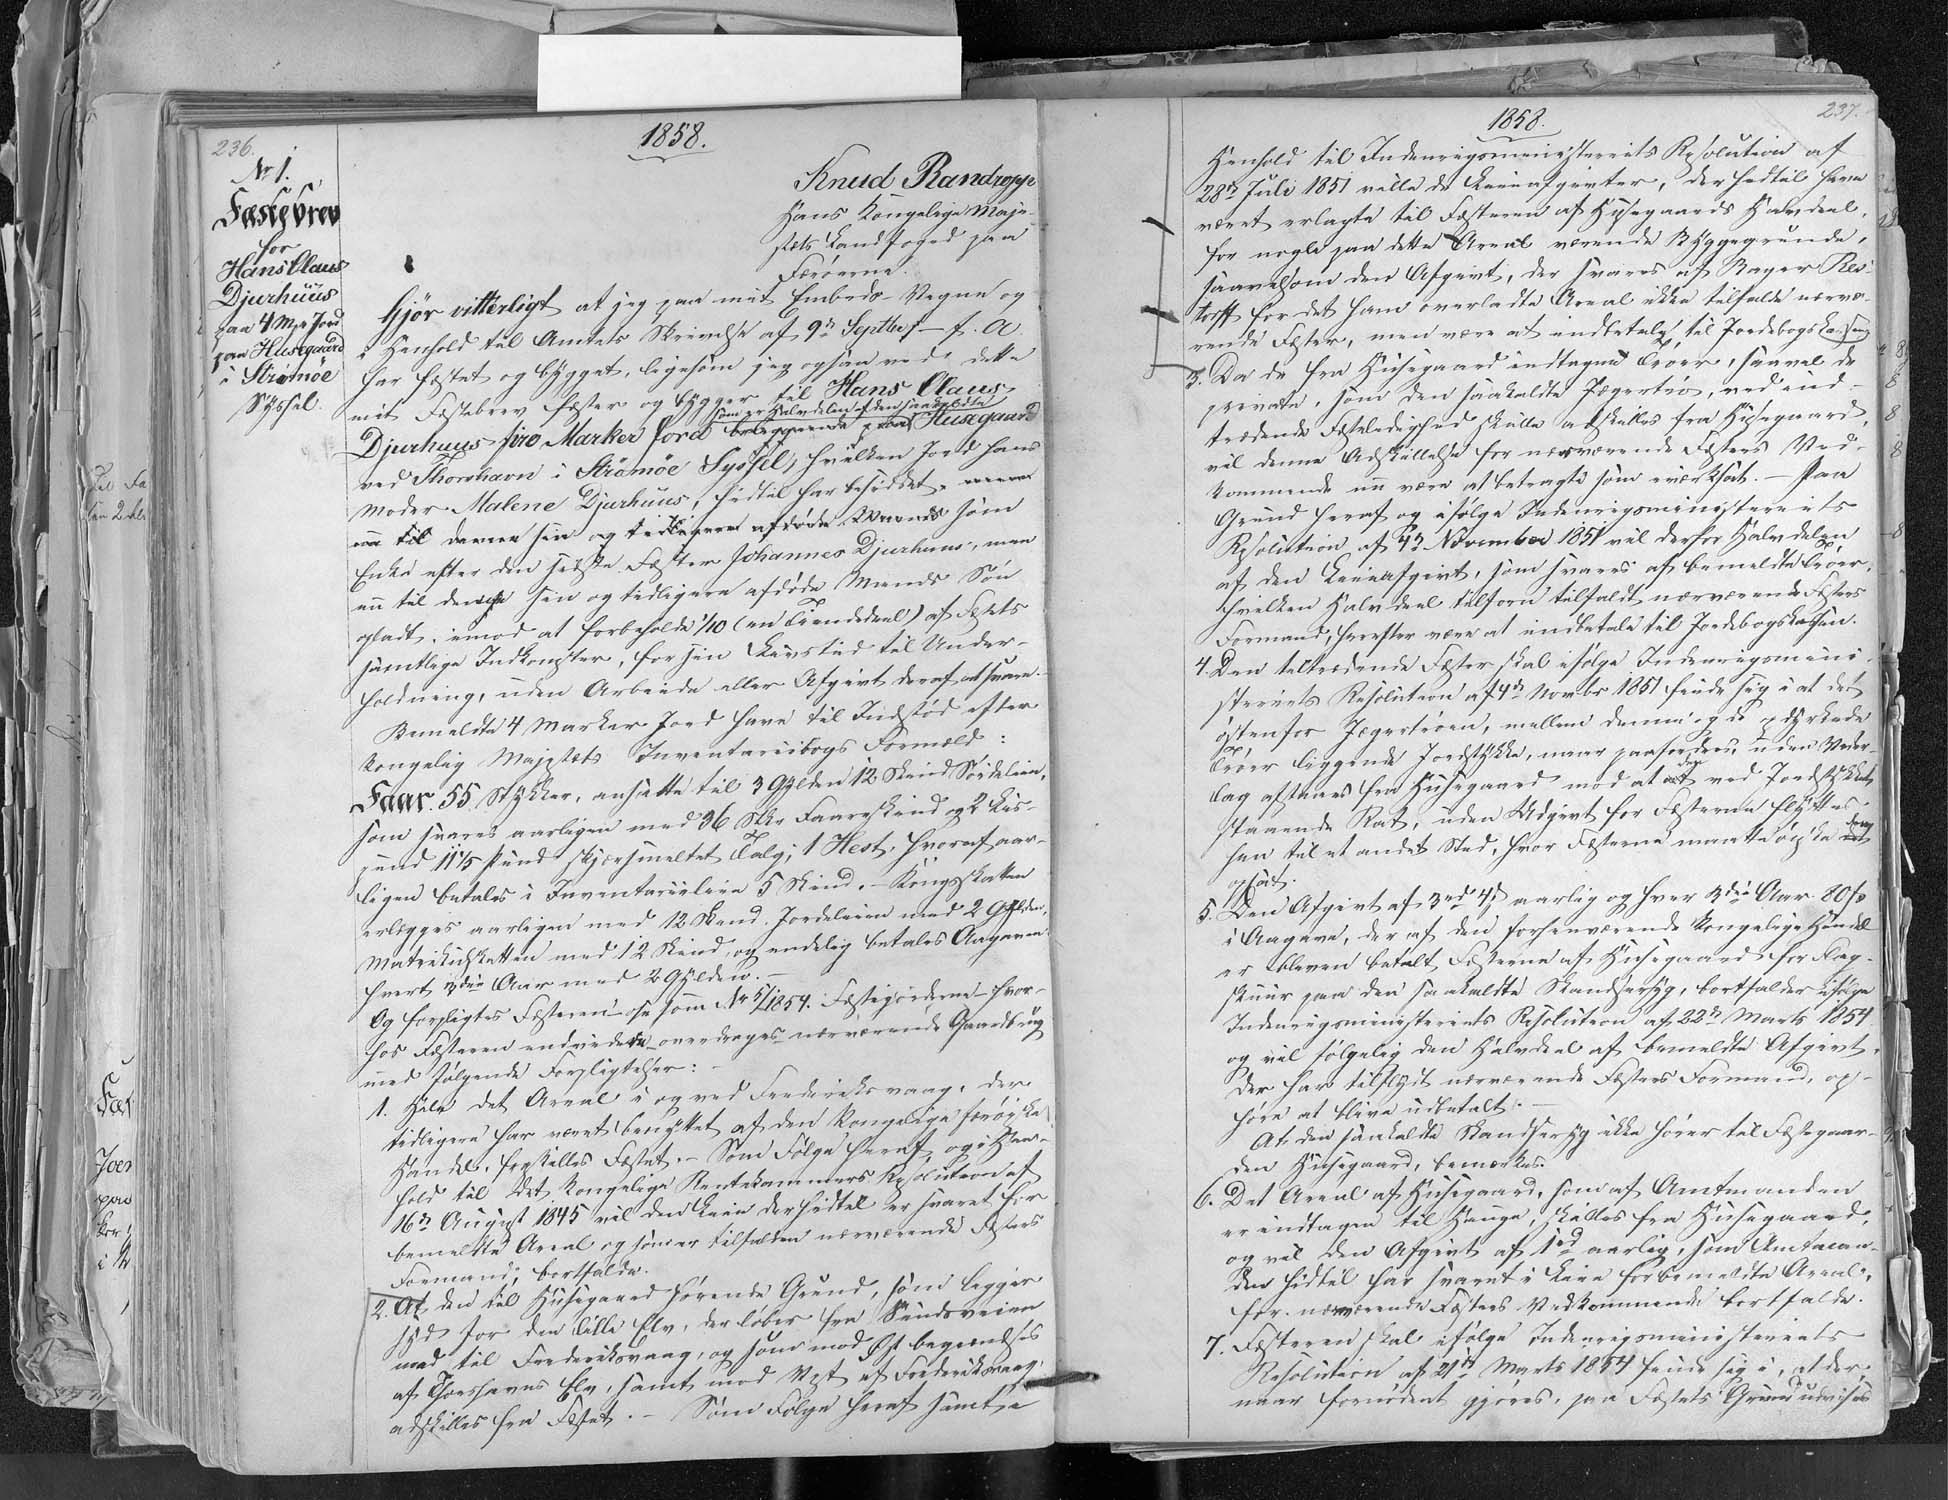 236.
1858.
No 1.
Fæstebrev
for
Hans Claus
Djurhuus
paa 4 Mrk Jord
paa Husegaard
i Strömöe
Syssel.
Knud Randropp
Hans Kongelige Maje-
stæts Landfoged paa
Færøerne.
Gjör vitterligt at jeg paa mit Embeds Vegne og
i Henhold til Amtets Skrivelse af 9de Septbr f. A
har fæstet og bygget, ligesom jeg ogsaa ved dette
mit Fæstebrev fæster og bygger til Hans Claus
som er Halvdelen af den saakaldte
Djurhuus fire Marker Jord beliggende paa Husegaard
ved Thorshavn i Strömöe Syssel, hvilken Jord hans
Moder Malene Djurhuus, hidtil har besiddet,
til denne sin og tidligere afdøde Mands som
Enke efter den sidste Fæster Johannes Djurhuus, men
nu til denne sin og tidligere afdøde Mands Søn
opladt, imod at forbeholde 1/10 (en Tiendedeel) af Fæstets
samtlige Indkomster, for sin Livstid til Under-
holdning, uden Arbeide eller Afgivt deraf at svare.
Bemeldte 4 Marker Jord have til Indstød efter
Kongelig Majestæts Inventariibogs Formeld:
Faar. 55 Stykker, ansatte til 3 Gylden 12 Skind Søideleie,
som svares aarligen med 36 Stkr Faareskind og 2 Lis-
pund 11 1/5 Pund skjærsmeltet Talg; 1 Hest, hvoraf aar-
ligen betales i Inventariileie 5 Skind. – Kongsskatten
erlægges aarligen med 12 Skind. Jordeleien med 2 Gylden,
Matrikulskatten med 12 Skind, og endelig betales Aagaven
hvert 3die Aar med 2 Gylden. –
Og forpligtes Fæsteren – ... som No 5/1854. Fæstegoderne – hvor-
hos Fæsteren endvidere overdrages nærværende Gaardbrug
med følgende Forpligtelser: –
1. Hele det Areal i og ved Frederiksvaag, der
tidligere har været benyttet af den Kongelige færøiske
Handel, fraskilles Fæstet. – Som Følge heraf og i Hen-
hold til det Kongelige Rentekammers Resolution af
16de August 1845 vil den Leie der hidtil er svaret for
bemeldte Areal og som er tilfalden nærværende Fæsters
Formand, bortfalde.
2. At den til Husegaard hørende Grund, som ligger
syd for den lille Elv, der løber fra Sundsveien
ned til Frederiksvaag, og som mod Øst begrændses
af Thorshavns Elv, samt mod Vest af Frederiksvaag,
adskilles fra Fæstet. – Som Følge heraf samt i
237.
1858.
Henhold til Indenrigsministeriets Resolution af
28de Juli 1851 ville de Leieafgivter, der hidtil have
været erlagte til Fæsteren af Husegaards Halvdeel,
for nogle paa dette Areal værende Byggegrunde,
saavelsom den Afgivt, der svares af Bager Res-
torff for det ham overladte Areal ikke tilfalde nærvæ-
rende Fæster, men være at indbetale til Jordebogskassen
3. Da de fra Husegaard indtagne Trøer, saavel de
private, som den saakaldte Jægertrø, ved ind-
trædende Fæsteledighed skulle adskilles fra Husegaard,
vil denne Adskillelse for nærværende Fæsters Ved-
kommende nu være at betragte som iværksat. – Paa
Grund heraf og ifølge Indenrigsministeriets
Resolution af 4de November 1851 vil derfor Halvdelen
af den Leieafgivt, som svares af bemeldte Trøer,
hvilken Halvdeel tilforn tilfaldt nærværende Fæsters
Formand, herefter være at indbetale til Jordebogskassen.
4. Den tiltrædende Fæster skal ifølge Indenrigsmini-
steriets Resolution af 4de Novbr 1851 finde sig i at det
østenfor Jægertrøen, mellem denne og de opdyrkede
Trøer liggende Jordstykke, naar paafordres, uden Veder-
lag afstaaes fra Husegaard mod at det ved Jordstykket
staaende Rat, uden Udgivt for Fæsterne flyttes
hen til et andet Sted, hvor Fæsterne maatte ønske det
opsat.
5. Den Afgivt af 3rd 4ß aarlig og hver 3die Aar 80ß
i Aagave, der af den forhenværende Kongelige Handel
er bleven betalt Fæsterne af Husegaard for Flag-
skuur paa den saakaldte Skandseryg, bortfalder ifølge
Indenrigsministeriets Resolution af 22de Marts 1854
og vil følgelig den Halvdeel af bemeldte Afgivt,
der har tilflydt nærværende Fæsters Formand, op-
høre at blive udbetalt. –
At den saakaldte Skandseryg ikke hører til Fæstegaar-
den Husegaard, bemærkes.
6. Det Areal af Husegaard, som af Amtmanden
er indtagen til Hauge, skilles fra Husegaard,
og vil den Afgivt af 1rd aarlig, som Amtman-
den hidtil har svaret i Leie for bemeldte Areal,
for nærværende Fæsters Vedkommende bortfalde.
7. Fæsteren skal ifølge Indenrigsministeriets
Resolution af 21de Marts 1854 finde sig i, at der,
naar fornødent gjøres, paa Fæstets Grund udvises